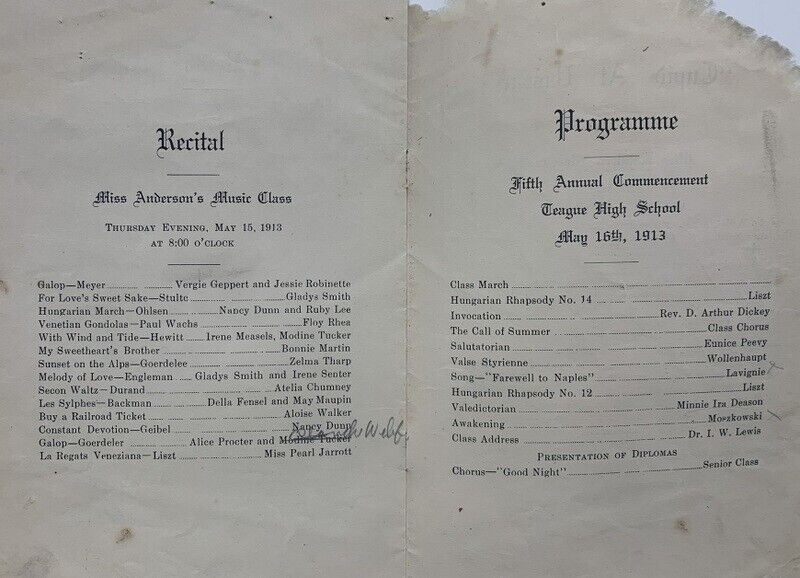 Recital
Miss Anderson's Music Class
Thursday Evening, May 15, 1913
at 8:00 o'clock
Galop—Meyer Vergie Geppert and Jessie Robinette
For Love's Sweet Sake—Stultc Gladys Smith
Hungarian March—Ohlsen Nancy Dunn and Ruby Lee
Venetian Gondolas—Paul Wachs Floy Rhea
With Wind and Tide—Hewitt Irene Measels, Modine Tucker
My Sweetheart's Brother Bonnie Martin
Sunset on the Alps—Goerdelee Zelma Tharp
Melody of Love—Engleman Gladys Smith and Irene Senter
Secon Waltz—Durand Atelia Chumney
Les Sylphes—Backman Della Fensel and May Maupin
Buy a Railroad Ticket Aloise Walker
Constant Devotion—Geibel Nancy Dunn
Galop—Goerdeler Alice Procter and Modine Tucker
La Regats Veneziana—Liszt Miss Pearl Jarrott
Programme
Fifth Annual Commencement
Teague High School
May 16th, 1913
Class March
Hungarian Rhapsody No. 14 Liszt
Invocation Rev. D. Arthur Dickey
The Call of Summer Class Chorus
Salutatorian Eunice Peevy
Valse Styrienne Wollenhaupt
Song—"Farewell to Naples" Lavignie
Hungarian Rhapsody No. 12 Liszt
Valedictorian Minnie Ira Deason
Awakening Moszkowski
Class Address Dr. I. W. Lewis
Presentation of Diplomas
Chorus—"Good Night" Senior Class